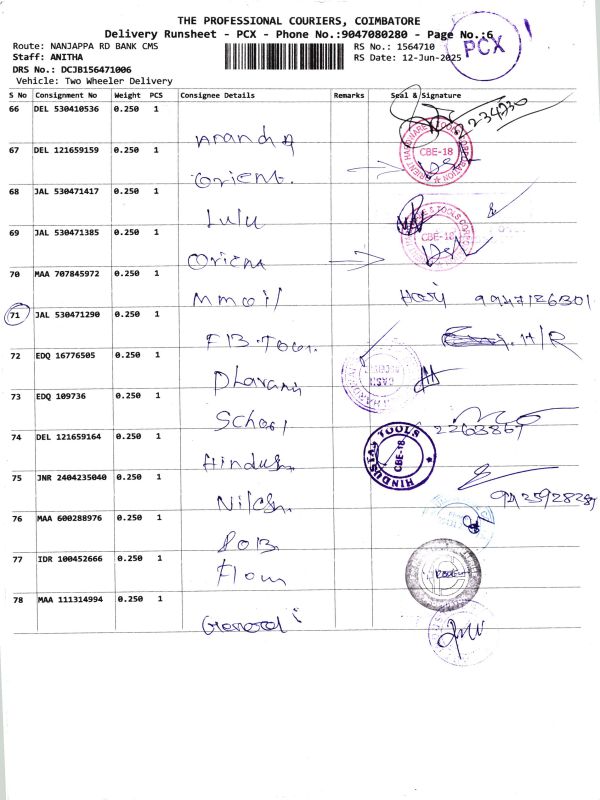 THE PROFESSIONAL COURIERS, COIMBATORE
Delivery Runsheet - PCX - Phone No.:9047080280 - Page No.:6
PCX
Route: NANJAPPA RD BANK CMS
Staff: ANITHA
DRS No.: DCJB156471006
Vehicle: Two Wheeler Delivery
RS No.: 1564710
RS Date: 12-Jun-2025
S No Consignment No Weight PCS Consignee Details Remarks Seal & Signature
66 DEL 530410536 0.250 1
2234330
67 DEL 121659159 0.250 1 Orient.
CBE-18
68 JAL 530471417 0.250 1 Lulu
69 JAL 530471385 0.250 1
CBE-18
70 MAA 707845972 0.250 1 Hari 9947126301
71 JAL 530471290 0.250 1 H/R
72 EDQ 16776505 0.250 1 Dharani
73 EDQ 109736 0.250 1 School
2263867
74 DEL 121659164 0.250 1 Hindus
HINDUSTAN TOOLS CBE-18
75 JNR 2404235040 0.250 1 Nilesh.
76 MAA 600288976 0.250 1
77 IDR 100452666 0.250 1
78 MAA 111314994 0.250 1 General